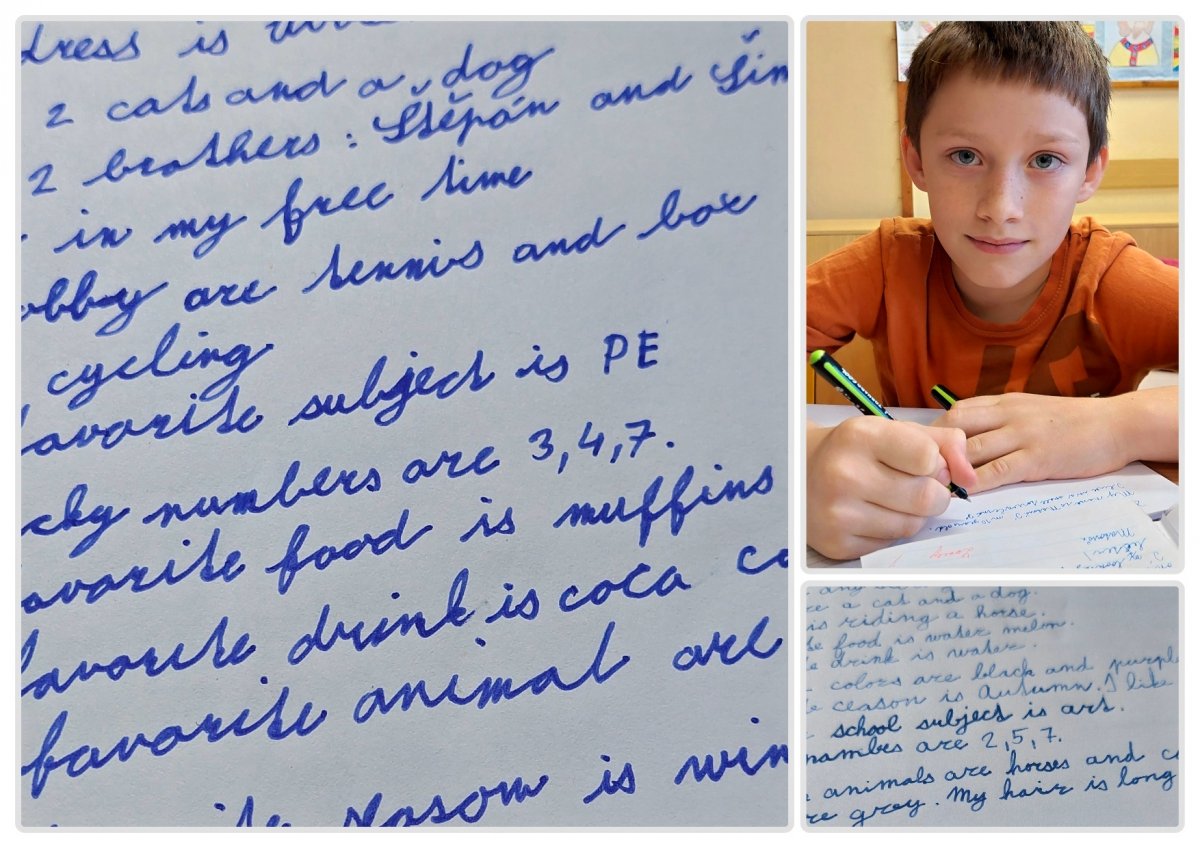 dress is
2 cats and a dog
2 brothers : Štěpán and Šim
in my free time
obby are tennis and box
, cycling
avorite subject is PE
cky numbers are 3,4,7.
avorite food is muffins
favorite drink is coca co
favorite animal are
is win
My name is
re a cat and a dog.
is riding a horse.
te food is water melon.
te drink is water.
colors are black and purple
te ceason is Autumn. I like
school subject is art.
nambes are 2,5,7.
animals are horses and c
re grey. My hair is long